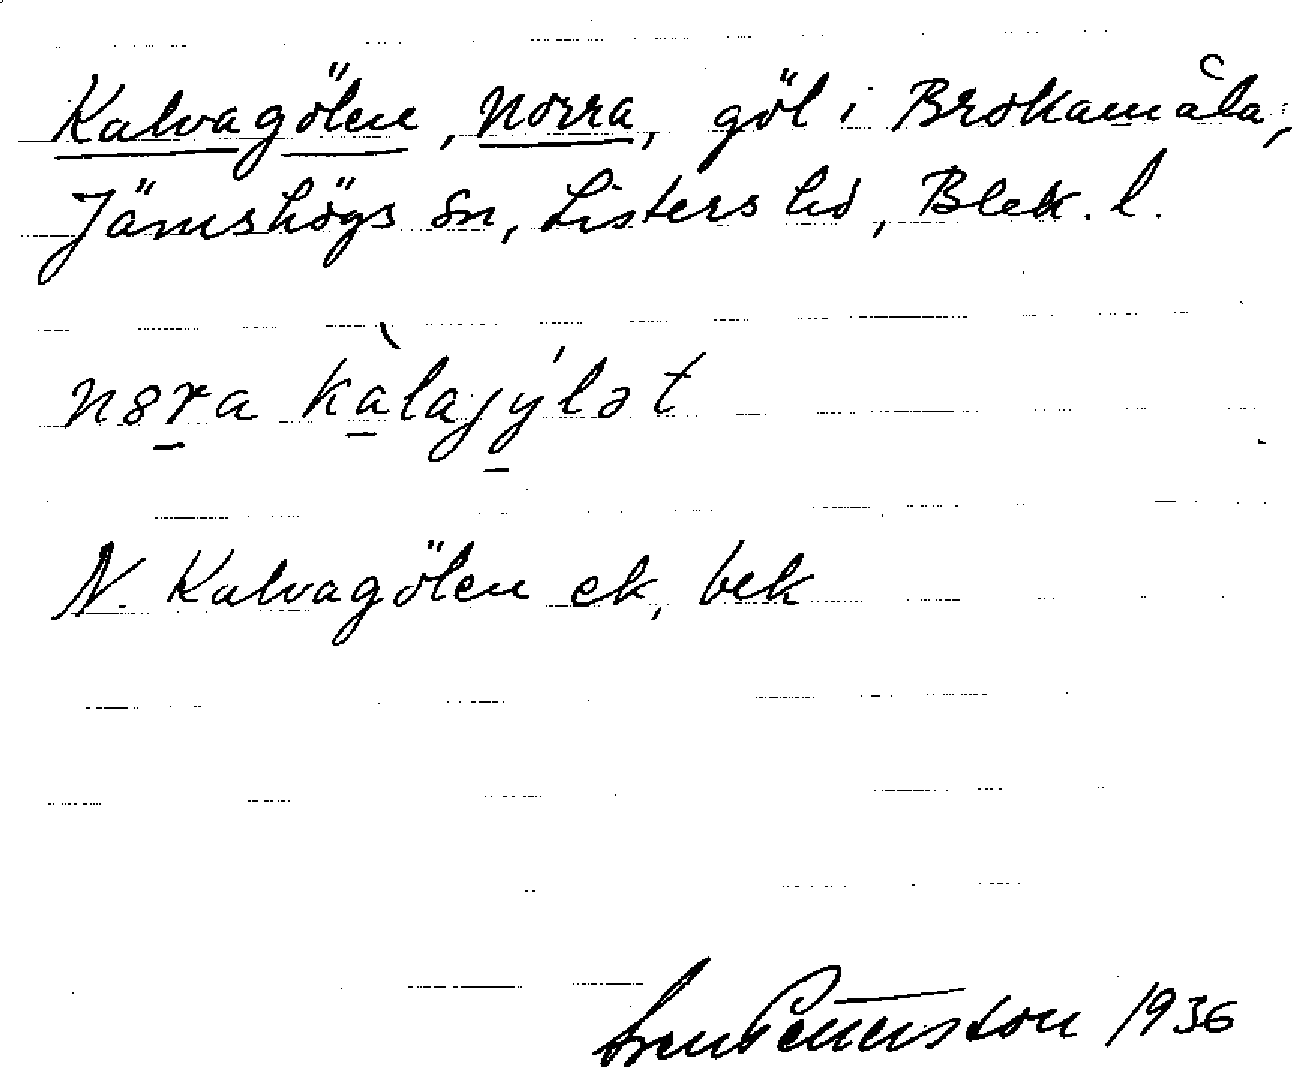 Kalvagölen, Norra, göl i Brokamåla,
Jämshögs sn, Listers hd, Blek. l.
nora kàlajýlət
N. Kalvagölen ek, bek
Sven Pettersson 1936